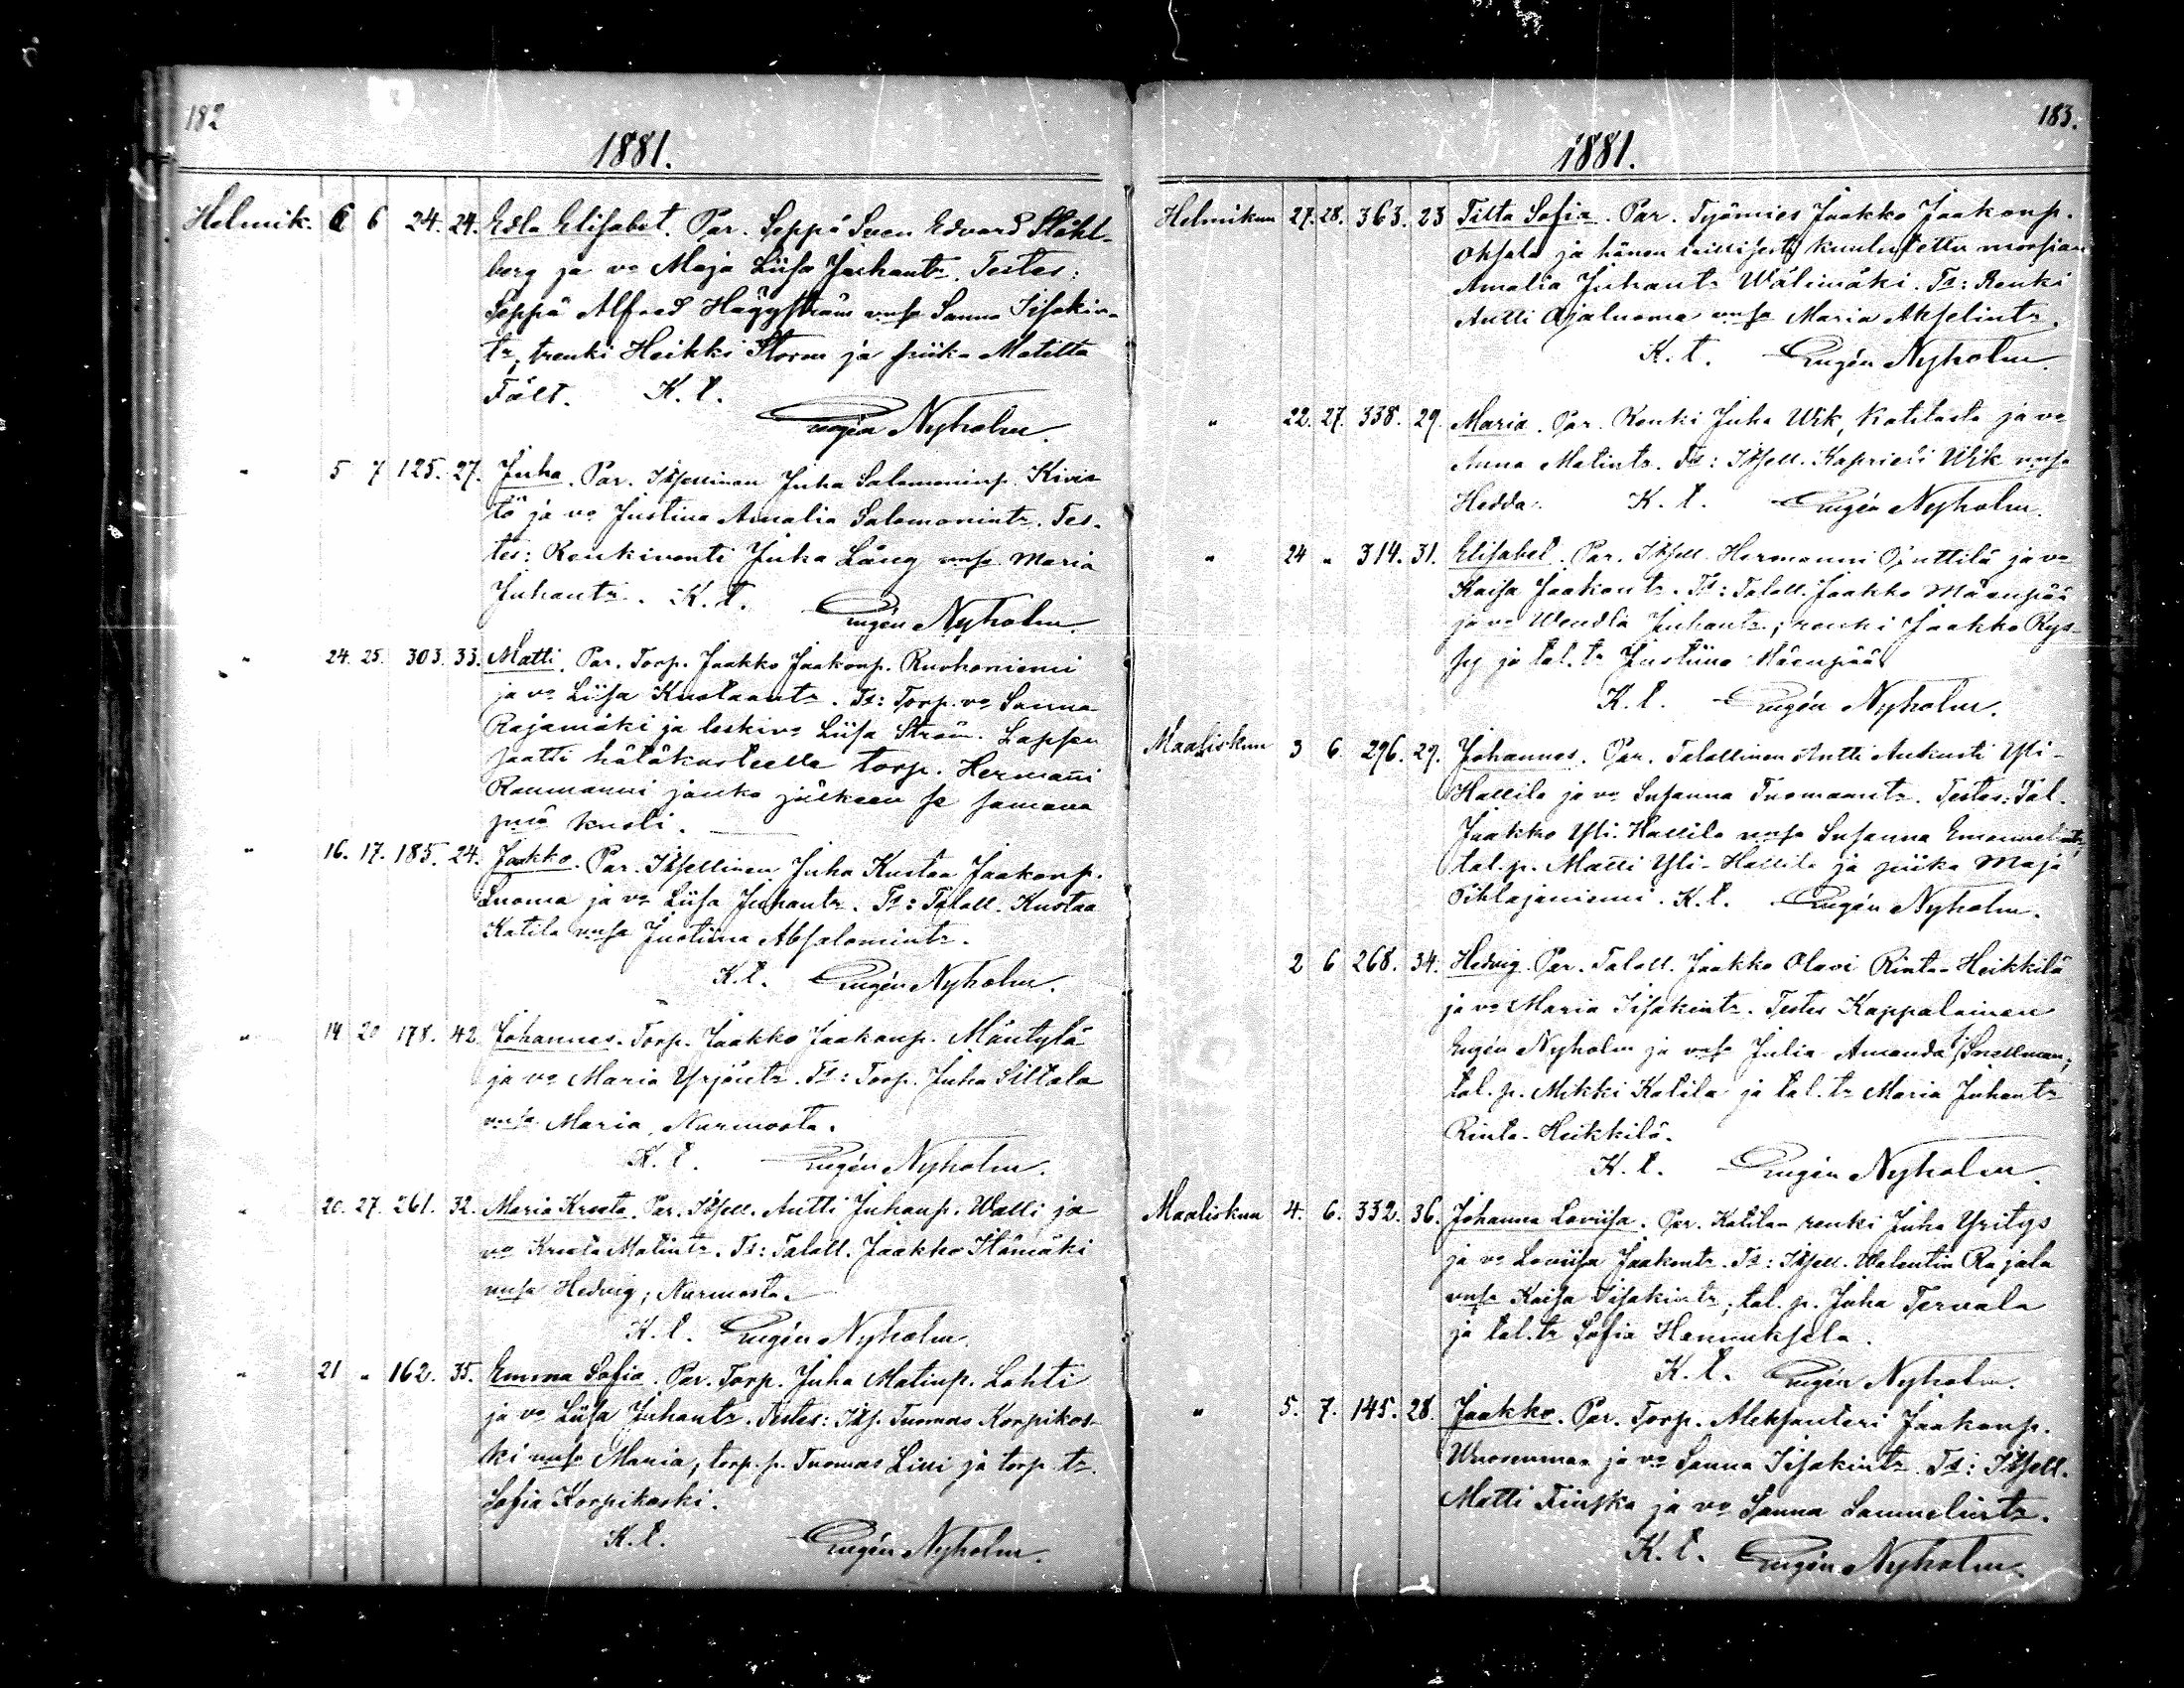 182
1881.
Helmik. 6 6 24. 24. Edla Elisabet. Par. Seppä Sven Edvard Ståhl-
berg ja vo Maja Liisa Juhantr. Testes:
Seppä Alfred Häggström vnsa Sanna Iisakin-
tr, trenki Heikki Storm ja piika Matilta
Fält. K. t.
Eugén Nyholm.
" 5 7 125. 27. Juha. Par. Itsellinen Juha Salomoninp. Kivis-
tö ja vo Justina Amalia Salomonintr. Tes-
tes: Renkivouti Juha Lång vnsa Maria
Juhantr. K. t. Eugén Nyholm.
" 24. 25. 303. 33. Matti. Par. Torp. Jaakko Jaakonp. Ruohoniemi
ja vo Liisa Kustaantr. Ts: Torp. vo Sanna
Rajamäki ja leskivo Liisa Ström. Lapsen
saatti hätäkasteelle torp. Hermanni
Raumanni jonka jälkeen se samana
pnä kuoli.
" 16. 17. 185. 24. Jaakko. Par. Itsellinen Juha Kustaa Jaakonp.
Luoma ja vo Liisa Juhantr. Ts: Taloll. Kustaa
Katila vnsa Justiina Absalomintr.
K. t. Eugén Nyholm.
" 14 20 178. 42 Johannes. Torp. Jaakko Jaakonp. Mäntylä
ja vo Maria Yrjöntr. Ts: Torp. Juha Siltala
vnsa Maria, Nurmosta.
K. t. Eugén Nyholm.
" 20. 27. 261. 32. Maria Kreeta. Par. Itsell. Antti Juhanp. Walli ja
vo Kreeta Matintr. Ts: Taloll. Jaakko Ilämäki
vnsa Hedvig; Nurmosta.
K. t. Eugén Nyholm.
" 21 " 162. 35. Emma Sofia. Par. Torp. Juha Matinp. Lahti
ja vo Liisa Juhantr. Testes: Its. Tuomas Korpikos-
ki vnsa Maria, torp. p. Tuomas Lini ja torp. tr.
Sofia Korpikoski.
K. t. Eugén Nyholm.
183.
1881.
Helmikuu 27. 28. 363. 23 Tilta Sofia. Par. Työmies Jaakko Jaakonp.
Oksala ja hänen laillisesti kuulutettu morsian
Amalia Juhantr Wälimäki. Ts: Renki
Antti Ojaluoma vnsa Maria Akselintr.
K. t. Eugén Nyholm.
" 22. 27. 338. 29. Maria. Par. Renki Juha Wik, Katilasta ja vo
Anna Matintr. Ts: Itsell. Kaprieli Wik vnsa
Hedda. K. t. Eugén Nyholm.
" 24 " 314. 31. Elisabet. Par. Itsell. Hermanni Penttilä ja vo
Kaisa Jaakontr. Ts: Taloll. Jaakko Mäenpää
ja vo Wendla Juhantr; renki Jaakko Rys-
sy ja tal. tr Justiina Mäenpää.
K. t. Eugén Nyholm.
Maaliskuu 3 6. 296. 29. Johannes. Par. Talollinen Antti Aukusti Yli-
Hallila ja vo Susanna Tuomaantr. Testes: Tal.
Jaakko Yli-Hallila vnsa Susanna Emanuelintr,
tal. p. Matti Yli-Hallila ja piika Maja
Pihlajaniemi. K. t. Eugén Nyholm.
2 6 268. 34. Hedvig. Par. Taloll. Jaakko Olavi Rinta-Heikkilä
ja vo Maria Iisakintr. Testes Kappalainen
Eugén Nyholm ja vnsa Julia Amanda Snellman,
tal. p. Mikki Katila ja tal. tr Maria Juhantr
Rinta-Heikkilä.
K. t. Eugén Nyholm.
Maaliskuu 4. 6. 332. 36. Johanna Loviisa. Par. Katilan renki Juha Yritys
ja vo Loviisa Jaakontr. Ts: Itsell. Walentin Rajala
vnsa Kaisa Iisakintr; tal. p. Juha Tervala
ja tal. tr Sofia Hannuksela.
K. t. Eugén Nyholm.
" 5. 7. 145. 28. Jaakko. Par. Torp. Aleksanteri Jaakonp.
Wuorenmaa ja vo Sanna Iisakintr. Ts: Itsell.
Matti Finska ja vo Sanna Samuelintr.
K. t. Eugén Nyholm.